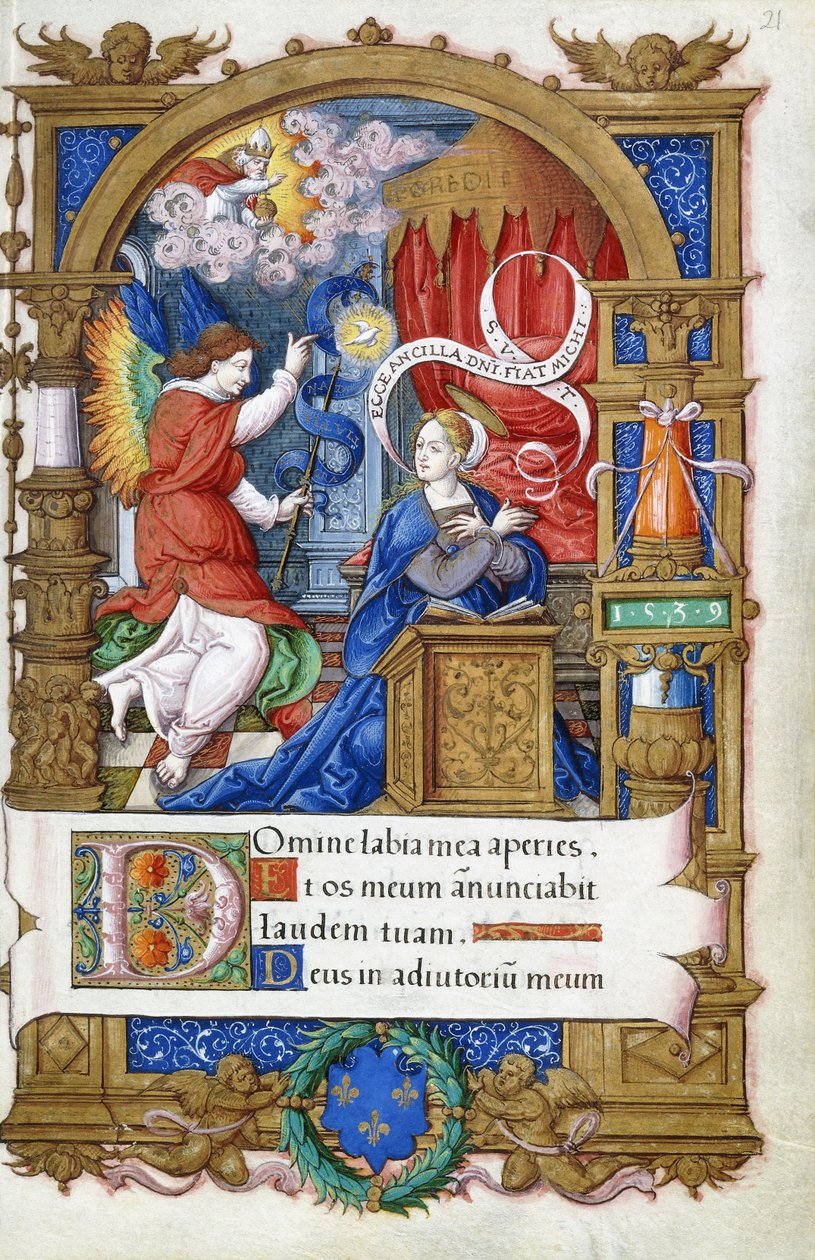 21
ECCE ANCILLA·DNI·FIAT MICHI·
S·V·T·
1·5·3·9
Domine labia mea aperies.
Et os meum ānunciabit
laudem tuam.
Deus in adiutoriū meum